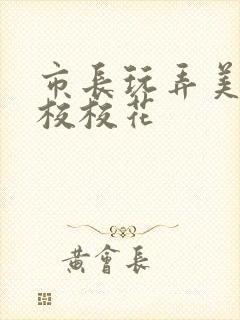 市長玩弄美
校校花
黃會長